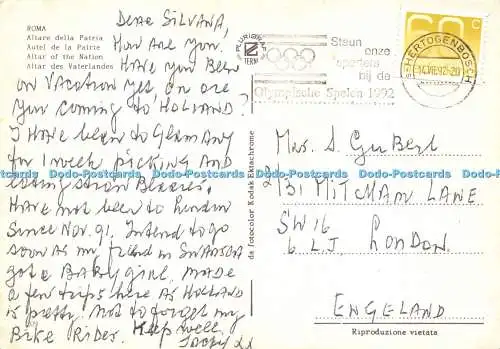 ROMA
Altare della Patria
Autel de la Patrie
Altar of the Nation
Altar des Vaterlandes
Dear SILVANA,
How are you.
Have you been
on VACATION yet, or are
you coming to HOLLAND?
I Have been to Germany
for 1 week picking and
eating straw
Have not been to London
since Nov. 91. Intend to go
soon as my friend in SWANSEA
got a BABY girl. made
a few trips here as HOLLAND
is pretty. not to forget my
Bike Rides. Keep well,
xx
PLURIBUS
Steun
onze
sporters
bij de
Olympische Spelen 1992
'S-HERTOGENBOSCH
60 c
Mrs. S.
MITCHAM LANE
SW 16
6 L J, London.
ENGELAND
da fotocolor Kodak Ektachrome
Riproduzione vietata
Dodo-Postcards Dodo-Postcards Dodo-Postcards Dodo-Postcards